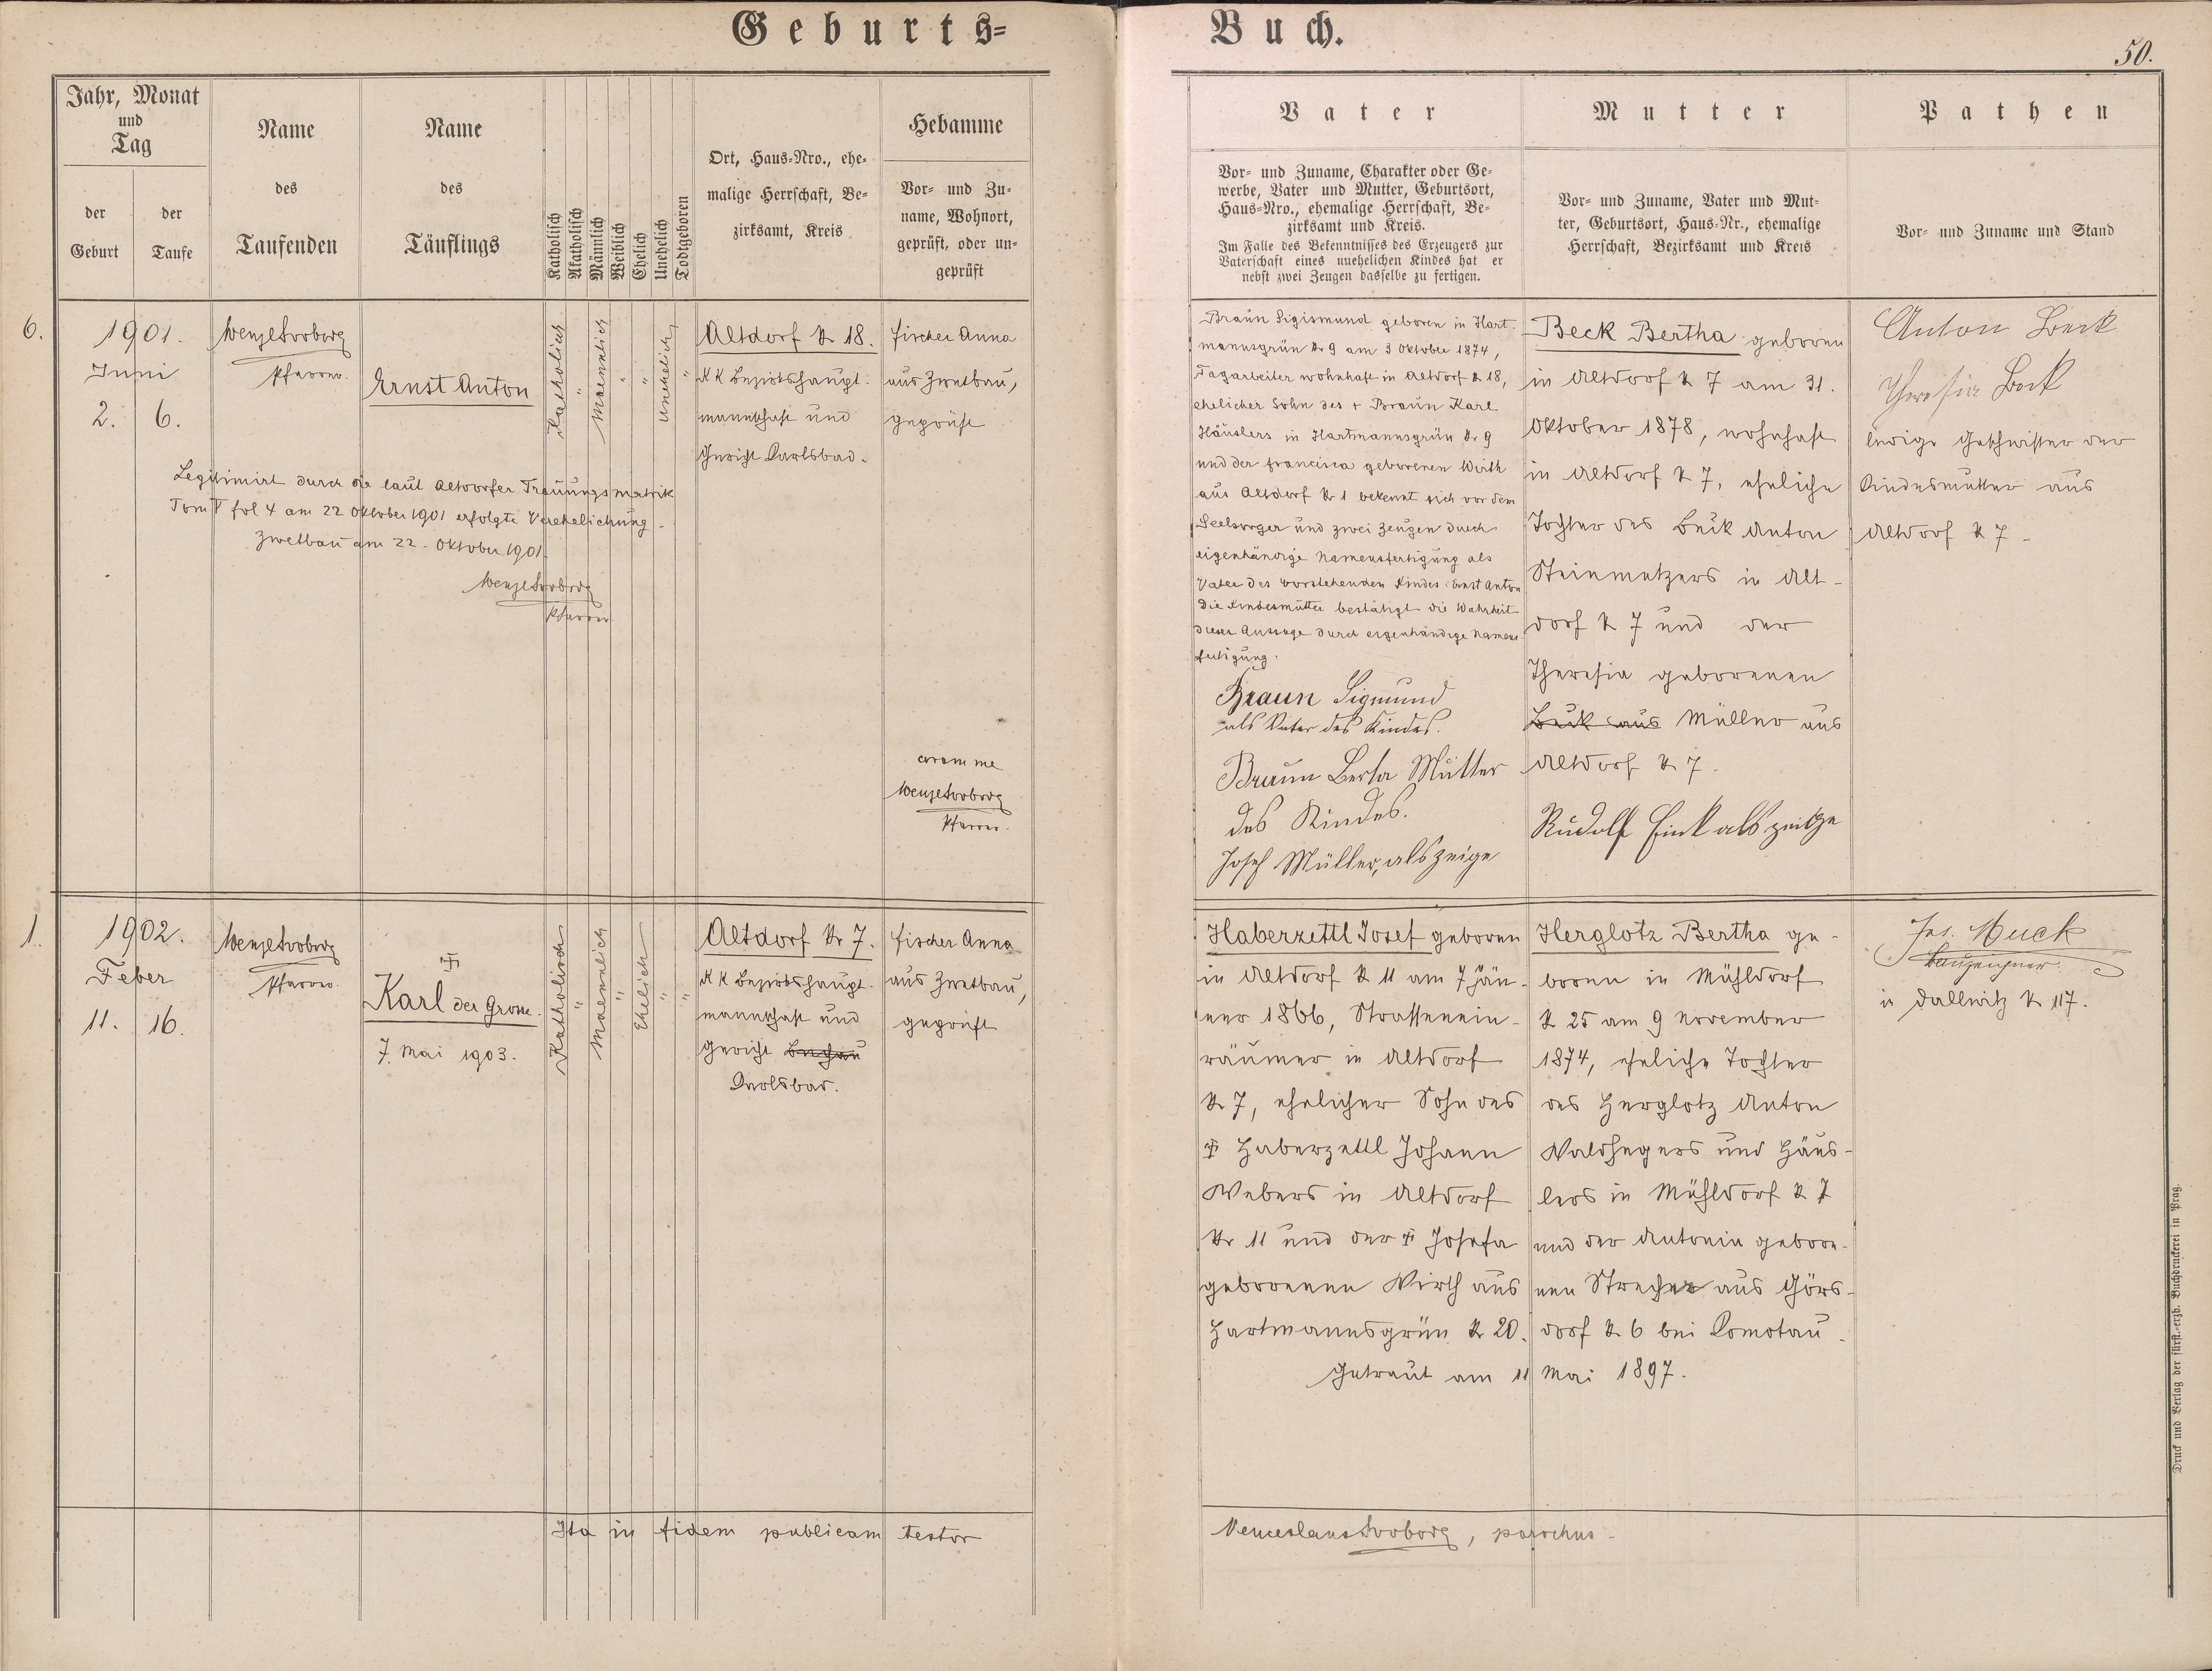 Geburts-
Buch.
50.
Jahr, Monat
und
Tag
der
Geburt
der
Taufe
Name
des
Taufenden
Name
des
Täuflings
Katholisch
Akatholisch
Männlich
Weiblich
Ehelich
Unehelich
Todtgeboren
Ort, Haus-Nro., ehe-
malige Herrschaft, Be-
zirksamt, Kreis
Hebamme
Vor- und Zu-
name, Wohnort,
geprüft, oder un-
geprüft
Vater
Vor- und Zuname, Charakter oder Ge-
werbe, Vater und Mutter, Geburtsort,
Haus-Nro., ehemalige Herrschaft, Be-
zirksamt und Kreis.
Im Falle des Bekenntnisses des Erzeugers zur
Vaterschaft eines unehelichen Kindes hat er
nebst zwei Zeugen dasselbe zu fertigen.
Mutter
Vor- und Zuname, Vater und Mut-
ter, Geburtsort, Haus-Nr., ehemalige
Herrschaft, Bezirksamt und Kreis
Pathen
Vor- und Zuname und Stand
6.
1901.
Juni
2. 6.
Wenzel Svoboda
Pfarrer.
Ernst Anton
Katholisch
"
Maennlich
"
"
Unehelich
"
Altdorf № 18.
KK Bezirkshaupt-
mannschaft und
Gericht Carlsbad.
Fischer Anna
aus Zwetbau,
geprüft
Legitimirt durch die laut Altdorfer Trauungsmatrik
Tom V fol 4 am 22 Oktober 1901 erfolgte Verehelichung -
Zwetbau am 22. Oktober 1901.
Wenzel Svoboda
Pfarrer
coram me
Wenzel Svoboda
Pfarrer.
Braun Sigismund geboren in Hart-
mannsgrün № 9 am 3 Oktober 1874,
Tagarbeiter wohnhaft in Altdorf № 18,
ehelicher Sohn des + Braun Karl
Häuslers in Hartmannsgrün № 9
und der Francisca geborenen Wirth
aus Altdorf № 1 bekennt sich vor dem
Seelsorger und zwei Zeugen durch
eigenhändige Namensfertigung als
Vater des vorstehenden Kindes Ernst Anton
Die Kindesmutter bestätigt die Wahrheit
dieser Aussage durch eigenhändige Namens
fertigung.
Braun Sigmund
als Vater des Kindes.
Braun Berta Mutter
des Kindes.
Josef Müller, als Zeige
Beck Bertha geboren
in Altdorf № 7 am 31.
Oktober 1878, wohnhaft
in Altdorf № 7, eheliche
Tochter des Beck Anton
Steinmetzers in Alt-
dorf № 7 und der
Theresia geborenen
Beck aus Müller aus
Altdorf № 7.
Rudolf Fink als zeitge
Anton Beck
Theresia Beck
ledige Geschwister der
Kindesmutter aus
Altdorf № 7.
1.
1902.
Feber
11. 16.
Wenzel Svoboda
Pfarrer.
Karl der Grosse.
7. Mai 1903.
Katholisch
"
Maennlich
"
Ehelich
"
"
Altdorf № 7.
KK Bezirkshaupt-
mannschaft und
Gericht Buchau
Carlsbad.
Fischer Anna
aus Zwetbau,
geprüft
Haberzettl Josef geboren
in Altdorf № 11 am 7 Jän-
ner 1866, Strassenein-
räumer in Altdorf
№ 7, ehelicher Sohn des
+ Haberzettl Johann
Webers in Altdorf
№ 11 und der + Josefa
geborenen Wirth aus
Hartmannsgrün № 20.
Herglotz Bertha ge-
boren in Mühldorf
№ 25 am 9 November
1874, eheliche Tochter
des Herglotz Anton
Waldhegers und Häus-
lers in Mühldorf № 7
und der Antonia gebore-
nen Strecher aus Görs-
dorf № 6 bei Komotau.
Getraut am 11 Mai 1897.
Jos. Muck
in Dallwitz № 117.
Ita in fidem publicam testor
Venceslaus Svoboda, parochus.
Druck und Verlag der fürst.-erzb. Buchdruckerei in Prag.